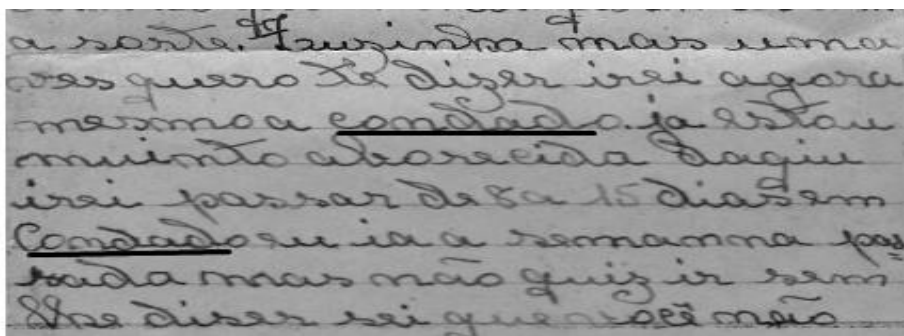 a sorte. Zuzinha mas uma
ves quero te dizer irei agora
mesmo a condado. ja estou
muinto aborecida daqiu
irei passar de 8 a 15 dias em
Condado eu ia a semanna pas
sada mas não quiz ir sem
lhe diser sei que você não